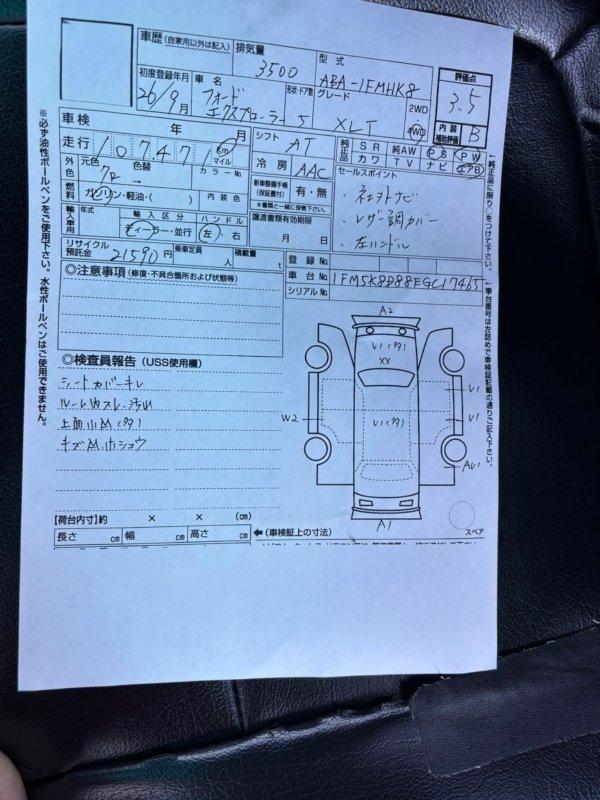 車歴(自家用以外は記入)
排気量
3500
型式
ABA-1FMHK8
評価点
3.5
初度登録年月
26/9月
車名
フォード
エクスプローラー
形状・ドア数
5
グレード
XLT
2WD
4WD
内装
補助評価
B
車検
年 月
走行
107471
km
マイル
シフト
AT
純正品
SR 純AW PS PW
カワ TV ナビ エアB
外色
元色
色替
カラーNo.
冷房
AAC
セールスポイント
・ネェヴトナビ
・レザー調カバー
・左ハンドル
燃料
ガソリン・軽油・( )
内装色
新車整備手帳
(保証書付)
有・無
※書類と一緒に保管下さい。
輸入車用
年式
輸入区分
ディーラー・並行
ハンドル
左・右
譲渡書類有効期限
月 日
リサイクル
預託金
21590円
乗車定員
人
積載量
t
登録No.
車台No.
シリアルNo.
1FM5K8D88EGC17465
◎注意事項(修復・不具合箇所および状態等)
◎検査員報告(USS使用欄)
シートカバーキレ
ルーム内スレ・汚れ
上面小M(多)
キズM.ホショウ
A2
U1(多)
XX
U1(多)
W2
U1
U1
AU1
A1
スペア
【荷台内寸】約 × × (cm)
長さ cm 幅 cm 高さ cm
←(車検証上の寸法)
※必ず油性ボールペンをご使用下さい。水性ボールペンはご使用できません。
←純正品に限り○をつけて下さい。
←車台番号は左詰めで車検証記載の通りご記入下さい。